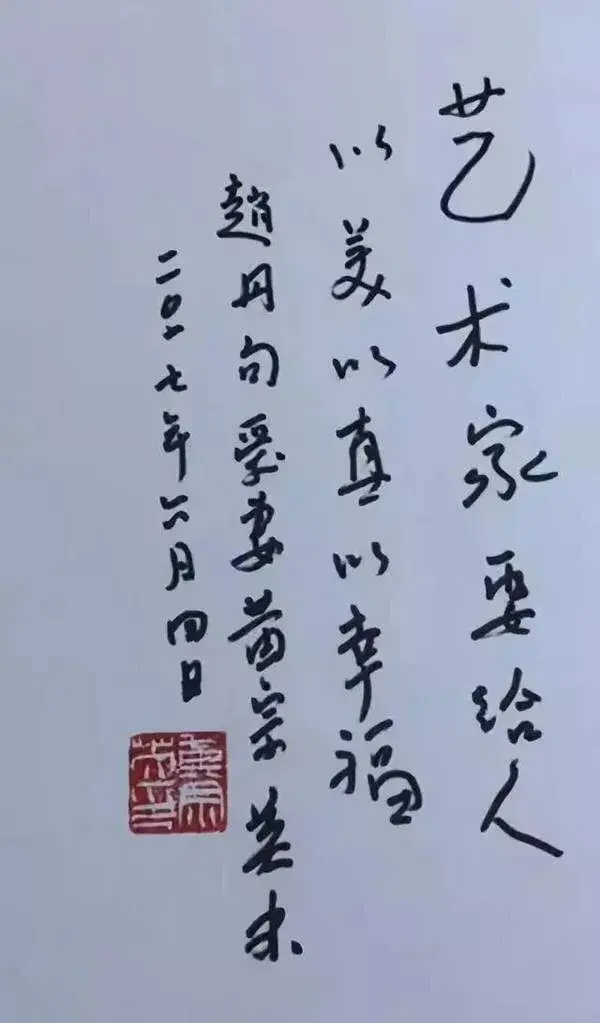 艺术家要给人
以美以真以幸福
趙丹句爱妻黄宗英书
二〇一七年六月四日
黄宗英印